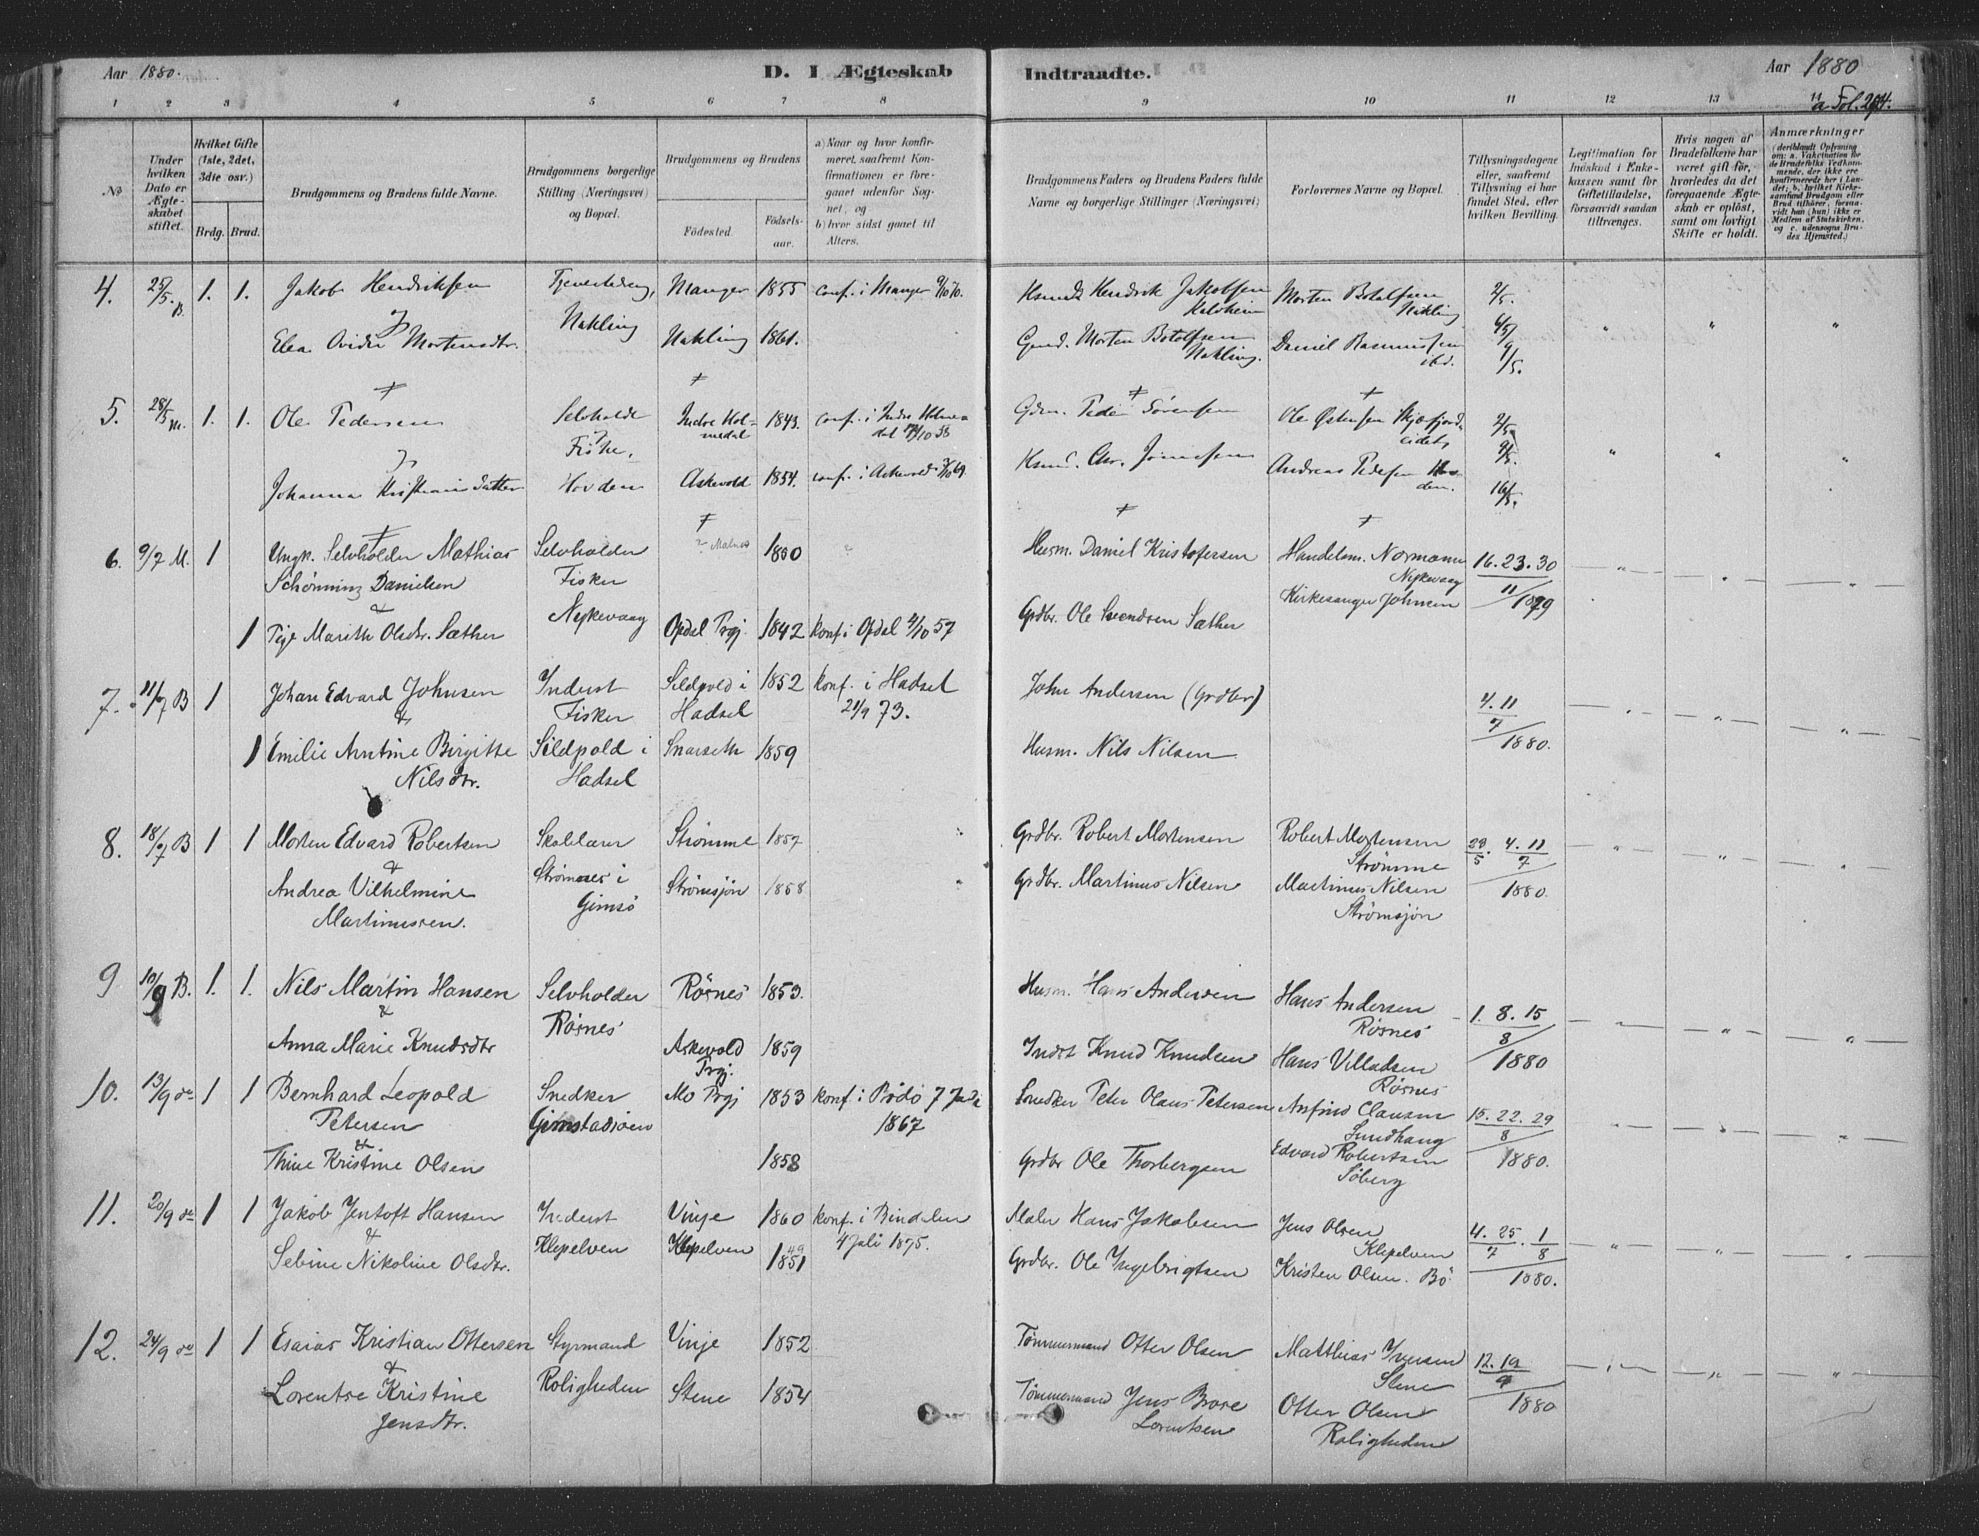 Aar 1880.
D. I Ægteskab
Indtraadte.
Aar 1880
1 2 3 4 5 6 7 8
9 10 11 12 13 14
a Fol. 294.
№
Under hvilken Dato er Ægteskabet stiftet.
Hvilket Gifte (1ste, 2det, 3die osv.)
Brdg. Brud.
Brudgommens og Brudens fulde Navne.
Brudgommens borgerlige Stilling (Næringsvei) og Bopæl.
Brudgommens og Brudens
Födested.
Födselsaar.
a) Naar og hvor konfirmeret, saafremt Konfirmationen er foregaaet udenfor Sognet, og
b) hvor sidst gaaet til Alters.
Brudgommens Faders og Brudens Faders fulde Navne og borgerlige Stillinger (Næringsvei)
Forlovernes Navne og Bopæl.
Tillysningsdagene eller, saafremt Tillysning ei har fundet Sted, efter hvilken Bevilling.
Legitimation for Indskud i Enkekassen samt for Giftetilladelse, forsaavidt saadan tiltrænges.
Hvis nogen af Brudefolkene har været gift för, hvorledes da det foregaaende Ægteskab er oplöst, samt om lovligt Skifte er holdt.
Anmærkninger
4. 25/5. B. 1. 1. Jakob Hendriksen Manger 1855 conf. i Manger 9/10 70. Hendrik Jakobsen Morten Botolfsen Nakling 2/5.
Elea Ovidia Mortensdtr. Nakling Nakling 1861. Morten Botolfsen Nakling. Daniel Rasmussen ibd. 4/5 9/5.
5. 28/5 M. 1. 1. Ole Pedersen Selvholde Indre Holmedal 1843. conf. i Indre Holmedal Gdm. Peder Sörensen Ole Østensen 2/5
Fiske,
Johanna Kristiansdatter Hovden Askevold 1854. conf. i Askevold Andreas Pedersen Hovden. 9/5. 16/5.
6. 9/7 M. 1 Ungk. Selvholder Mathias Selvholder Malnes 1850 Husm. Daniel Kristofersen Handelsm. Normann 16. 23. 30
Schönning Danielsen Fisker Nykevaag 11/1879
& Nykevaag Kirkesanger Johnsen
1 Marith Olsdtr. Sæther Opdal Prgj. 1842 konf. i Opdal 4/10 57 Grdbr. Ole Svendsen Sæther
7. 11/7 B 1 Johan Edvard Johnsen Inderst Sildpold i 1852 konf. i Hadsel John Andersen (Grdbr) 4. 11
& Fisker Hadsel 21/9 73. 7
1 Emilie Antine Birgitte Sildpold i Snarseth 1859 Husm. Nils Nilsen 1880.
Nilsdtr. Hadsel
8. 18/7 B 1 1 Morten Edvard Robertsen Skolelærer Strömme 1857 Grdbr. Robert Mortensen Robert Mortensen 29/5. 4. 11
& Strömme 7
Andrea Vilhelmine Strömnes i Strömsjön 1858 Grdbr. Martinus Nilsen Martinus Nilsen 1880.
Martinussen. Gimsö Strömsjön
9 10/9 B. 1. 1. Nils Martin Hansen Selvholder Rörnes 1853. Husm. Hans Andersen Hans Andersen 1. 8. 15
& Rörnes Rörnes 8
Anna Marie Knudsdtr Askevold Prgj. 1859 Indst Knud Knudsen Hans Villadsen 1880
Rörnes
10. 13/9 1 1 Bernhard Leopold Snedker Mo Prgj 1853 konf. i Bodö 7 Snedker Peter Olaus Petersen Anfind Clausen 15. 22. 29
Petersen 1867 8
& Edvard Robertsen
Thine Kristine Olsen 1858 Grdbr Ole Thorbergsen Söberg 1880.
11. 20/9 1 1 Jakob Jentoft Hansen Inderst Vinje 1860 konf. i Bindalen Maler Hans Jakobsen Jens Olsen 4. 25. 1
& Klepelven Klepelven 4 Juli 1875. Klepelven 7 8
Sebine Nikoline Olsdtr. 1851 49 Grdbr. Ole Ingebrigtsen Kristen Olsen. Bö 1880.
12. 24/9 1 1 Esaias Kristian Ottersen Styrmand Vinje 1852 Tömmermand Otter Olsen Matthias Iversen 12. 19
& Stene 9
Lorentse Kristine Roligheden Stene 1854 Tömmermand Jens Lorentsen Otter Olsen 1880
Jensdtr. Roligheden